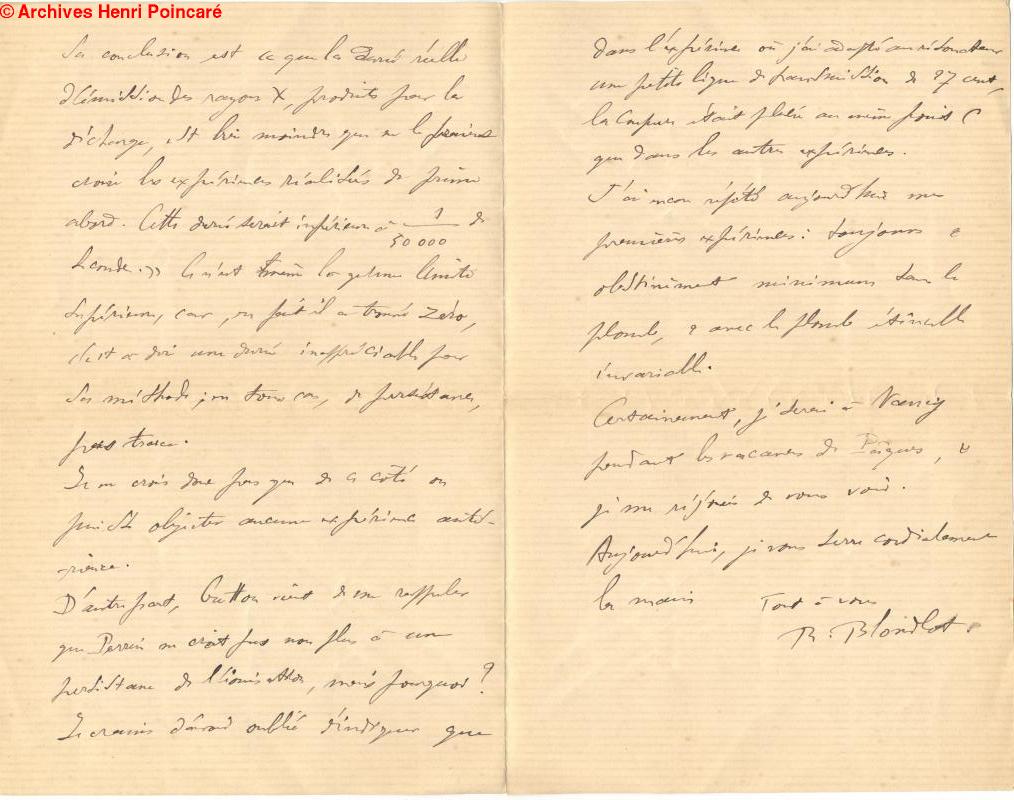 © Archives Henri Poincaré
Sa conclusion est « que la durée réelle
d'émission des rayons X, produits par la
décharge, est bien moindre que ne le feraient
croire les expériences réalisées de prime
abord. Cette durée serait inférieure à 1/50 000 de
seconde. » Ce n'est là qu'une limite
supérieure, car, en fait il a trouvé zéro,
c'est à dire une durée inappréciable par
sa méthode ; en tous cas, de persistance,
pas trace.
Je ne crois donc pas que de ce coté on
puisse objecter aucune expérience anté-
rieure.
D'autre part, Gutton vient de me rappeler
que Perrin ne croit pas non plus à une
persistance de l'ionisation, mais pourquoi ?
Je crains d'avoir oublié d'indiquer que
dans l'expérience où j'ai adapté au résonateur
une petite ligne de transmission de 27 cent,
la coupure était placée au même point
que dans les autres expériences.
J'ai encore répété aujourd'hui mes
premières expériences : toujours
obstinément minimum sans le
plomb, & avec le plomb étincelle
invariable.
Certainement, je serai à Nancy
pendant les vacances de Pâques, &
je me réjouis de vous voir.
Aujourd'hui, je vous serre cordialement
la main
Tout à vous
R. Blondlot